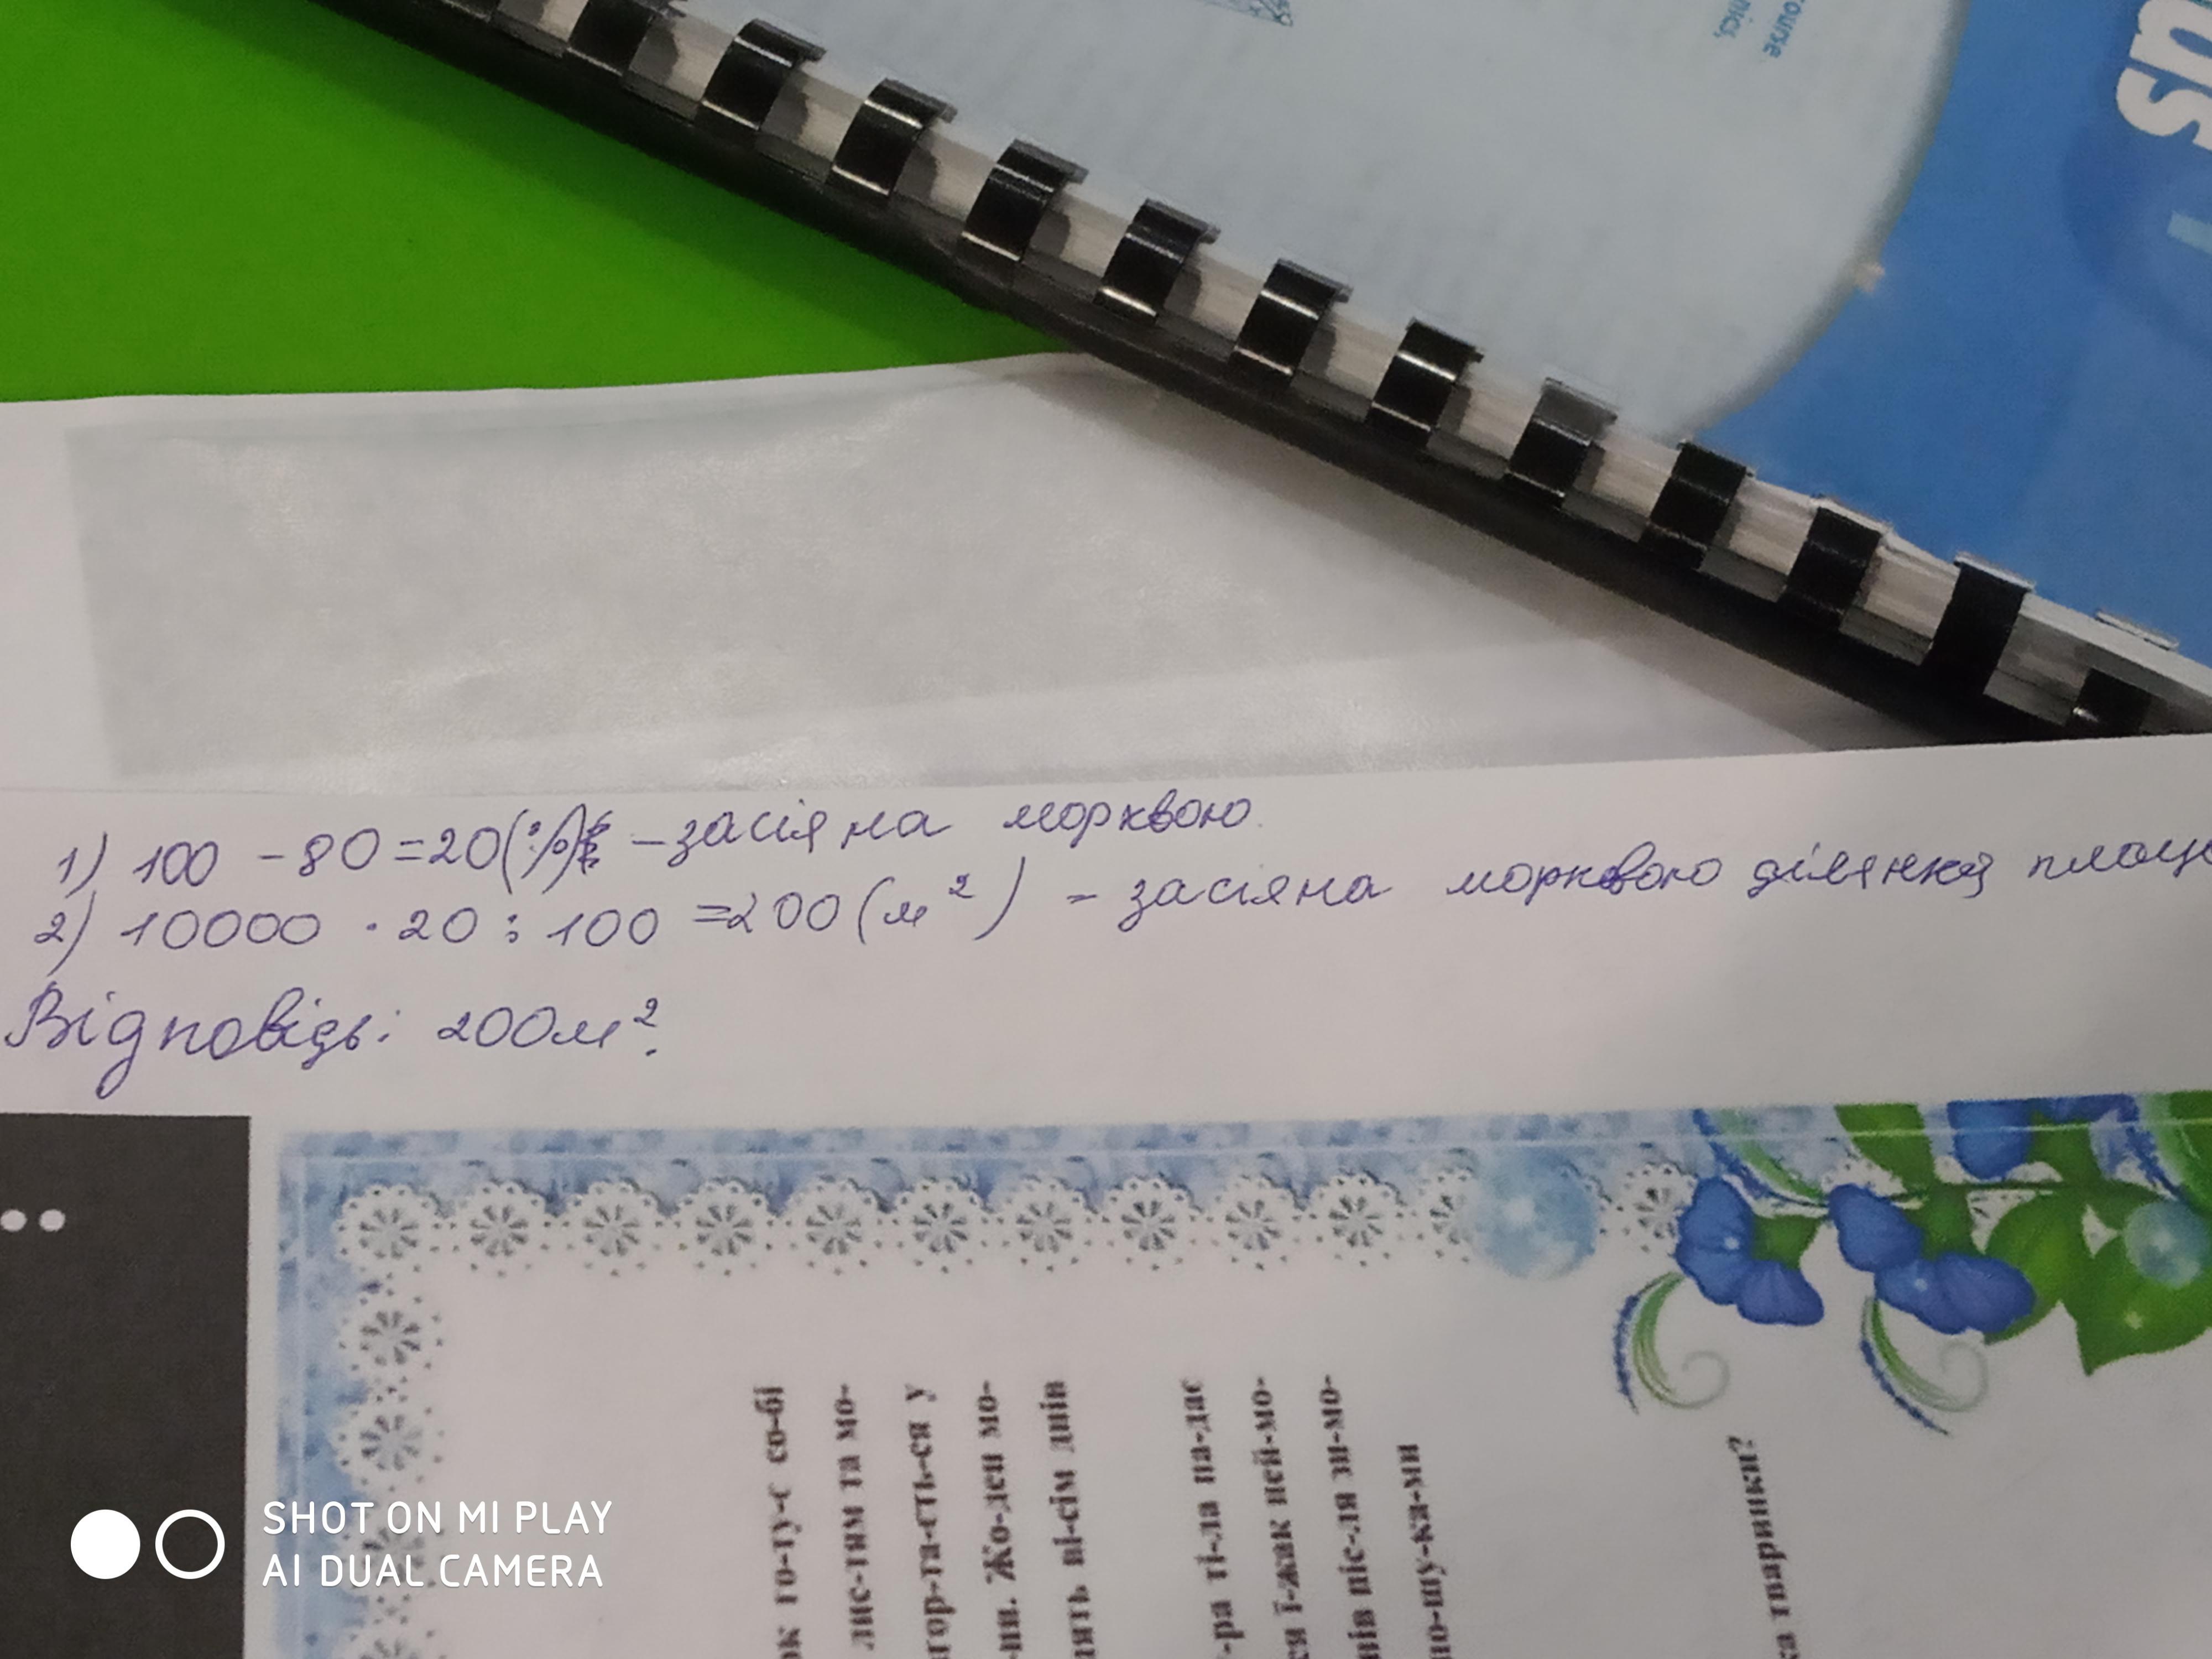 ourse
nics,
us
1) 100 - 80 = 20(%) - засіяна морквою.
2) 10000 · 20 : 100 = 200 (м²) - засіяна морквою ділянка площ
Відповідь: 200м².
ок го-ту-є со-бі
лис-тям та мо-
гор-та-єть-ся у
-ни. Жо-ден мо-
лять ві-сім днів
-ра ті-ла па-дає
ся ї-жак ней-мо-
нів піс-ля зи-мо-
по-шу-ка-ми
ка тваринки?
SHOT ON MI PLAY
AI DUAL CAMERA